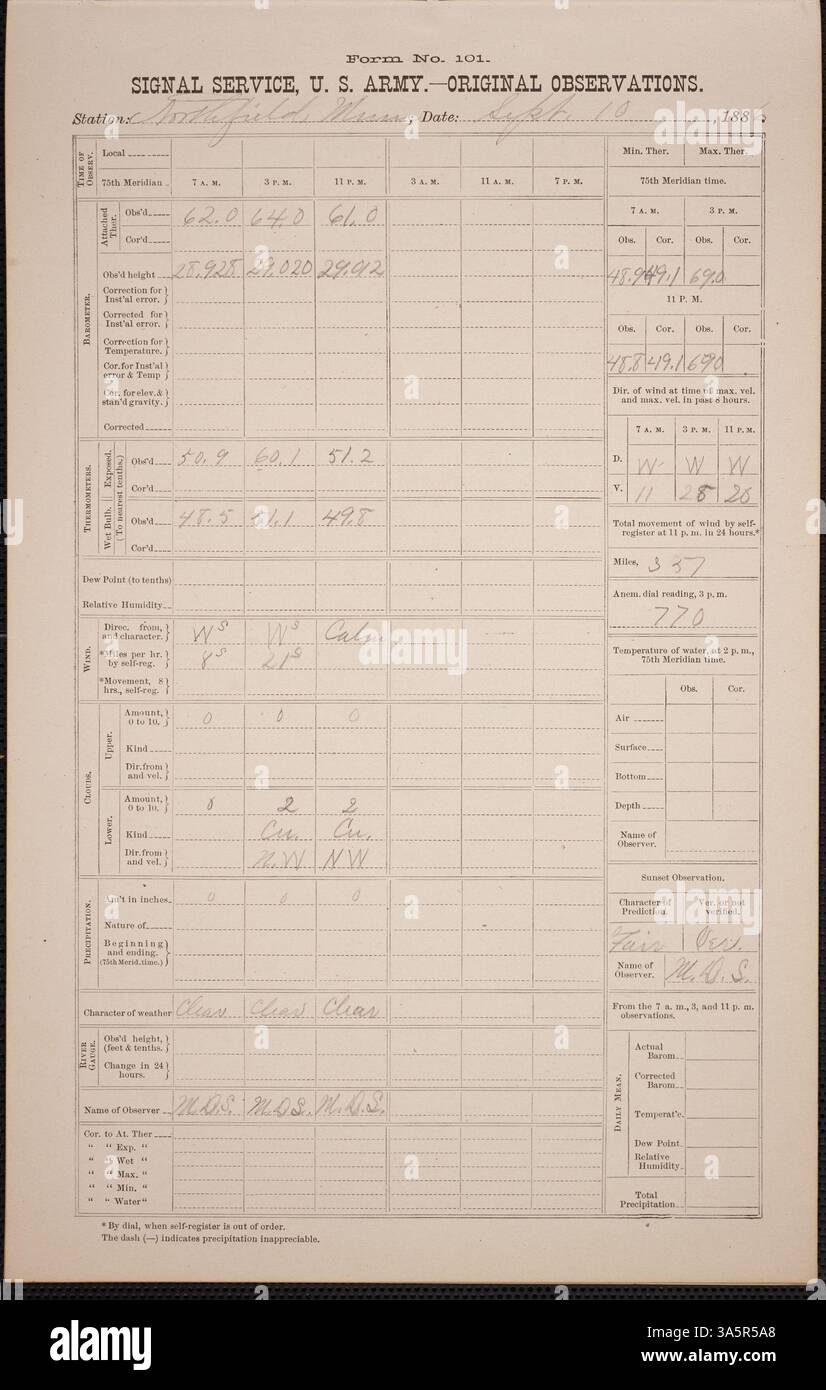 Form No. 101.
SIGNAL SERVICE, U. S. ARMY.—ORIGINAL OBSERVATIONS.
Station: Northfield, Minn, Date: Sept. 10, 188
TIME OF OBSERV.
Local
75th Meridian 7 A. M. 3 P. M. 11 P. M. 3 A. M. 11 A. M. 7 P. M.
BAROMETER.
Attached Ther.
Obs'd 62.0 64.0 61.0
Cor'd
Obs'd height 28.928 29.020 29.012
Correction for Inst'al error.
Corrected for Inst'al error.
Correction for Temperature.
Cor. for Inst'al error & Temp
Cor. for elev. & stan'd gravity.
Corrected
THERMOMETERS.
(To nearest tenths.)
Exposed.
Obs'd 50.9 60.1 51.2
Cor'd
Wet Bulb.
Obs'd 48.5 51.1 49.8
Cor'd
Dew Point (to tenths)
Relative Humidity
WIND.
Direc. from, and character. W S W S Calm
*Miles per hr. by self-reg. 8 S 21 S
*Movement, 8 hrs., self-reg.
CLOUDS.
Upper.
Amount, 0 to 10. 0 0 0
Kind
Dir. from and vel.
Lower.
Amount, 0 to 10. 0 2 2
Kind Cu. Cu.
Dir. from and vel. N.W NW
PRECIPITATION.
Am't in inches 0 0 0
Nature of
Beginning and ending. (75th Merid. time.)
Character of weather Clear Clear Clear
RIVER GAUGE.
Obs'd height, (feet & tenths.
Change in 24 hours.
Name of Observer M.D.S. M.D.S. M.D.S.
Cor. to At. Ther
" " Exp. "
" " Wet "
" " Max. "
" " Min. "
" " Water"
* By dial, when self-register is out of order.
The dash (—) indicates precipitation inappreciable.
Min. Ther. Max. Ther.
75th Meridian time.
7 A. M. 3 P. M.
Obs. Cor. Obs. Cor.
48.9 49.1 69.0
11 P. M.
Obs. Cor. Obs. Cor.
48.8 49.1 69.0
Dir. of wind at time of max. vel. and max. vel. in past 8 hours.
7 A. M. 3 P. M. 11 P. M.
D. W W W
V. 11 28 26
Total movement of wind by self-register at 11 p. m. in 24 hours.*
Miles, 357
Anem. dial reading, 3 p. m.
770
Temperature of water, at 2 p. m., 75th Meridian time.
Obs. Cor.
Air
Surface
Bottom
Depth
Name of Observer.
Sunset Observation.
Character of Prediction. Ver. or not verified.
Fair Ver.
Name of Observer. M.D.S.
From the 7 a. m., 3, and 11 p. m. observations.
DAILY MEAN.
Actual Barom.
Corrected Barom.
Temperat'e.
Dew Point
Relative Humidity.
Total Precipitation
alamy
a
alamy
Image ID: 3A5R5A8
www.alamy.com